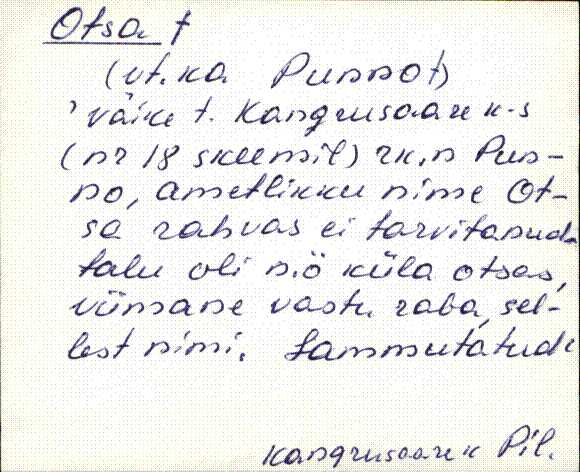 Otsa t
(vt. ka Punno t)
väike t. Kangrusaare k-s
(nr 18 skeemil) rk.n Pun-
no, ametlikku nime Ot-
sa rahvas ei tarvitanud.
talu oli n.ö küla otsas,
viimane vastu raba, sel-
lest nimi. Lammutatud
Kangrusaare k Pil.